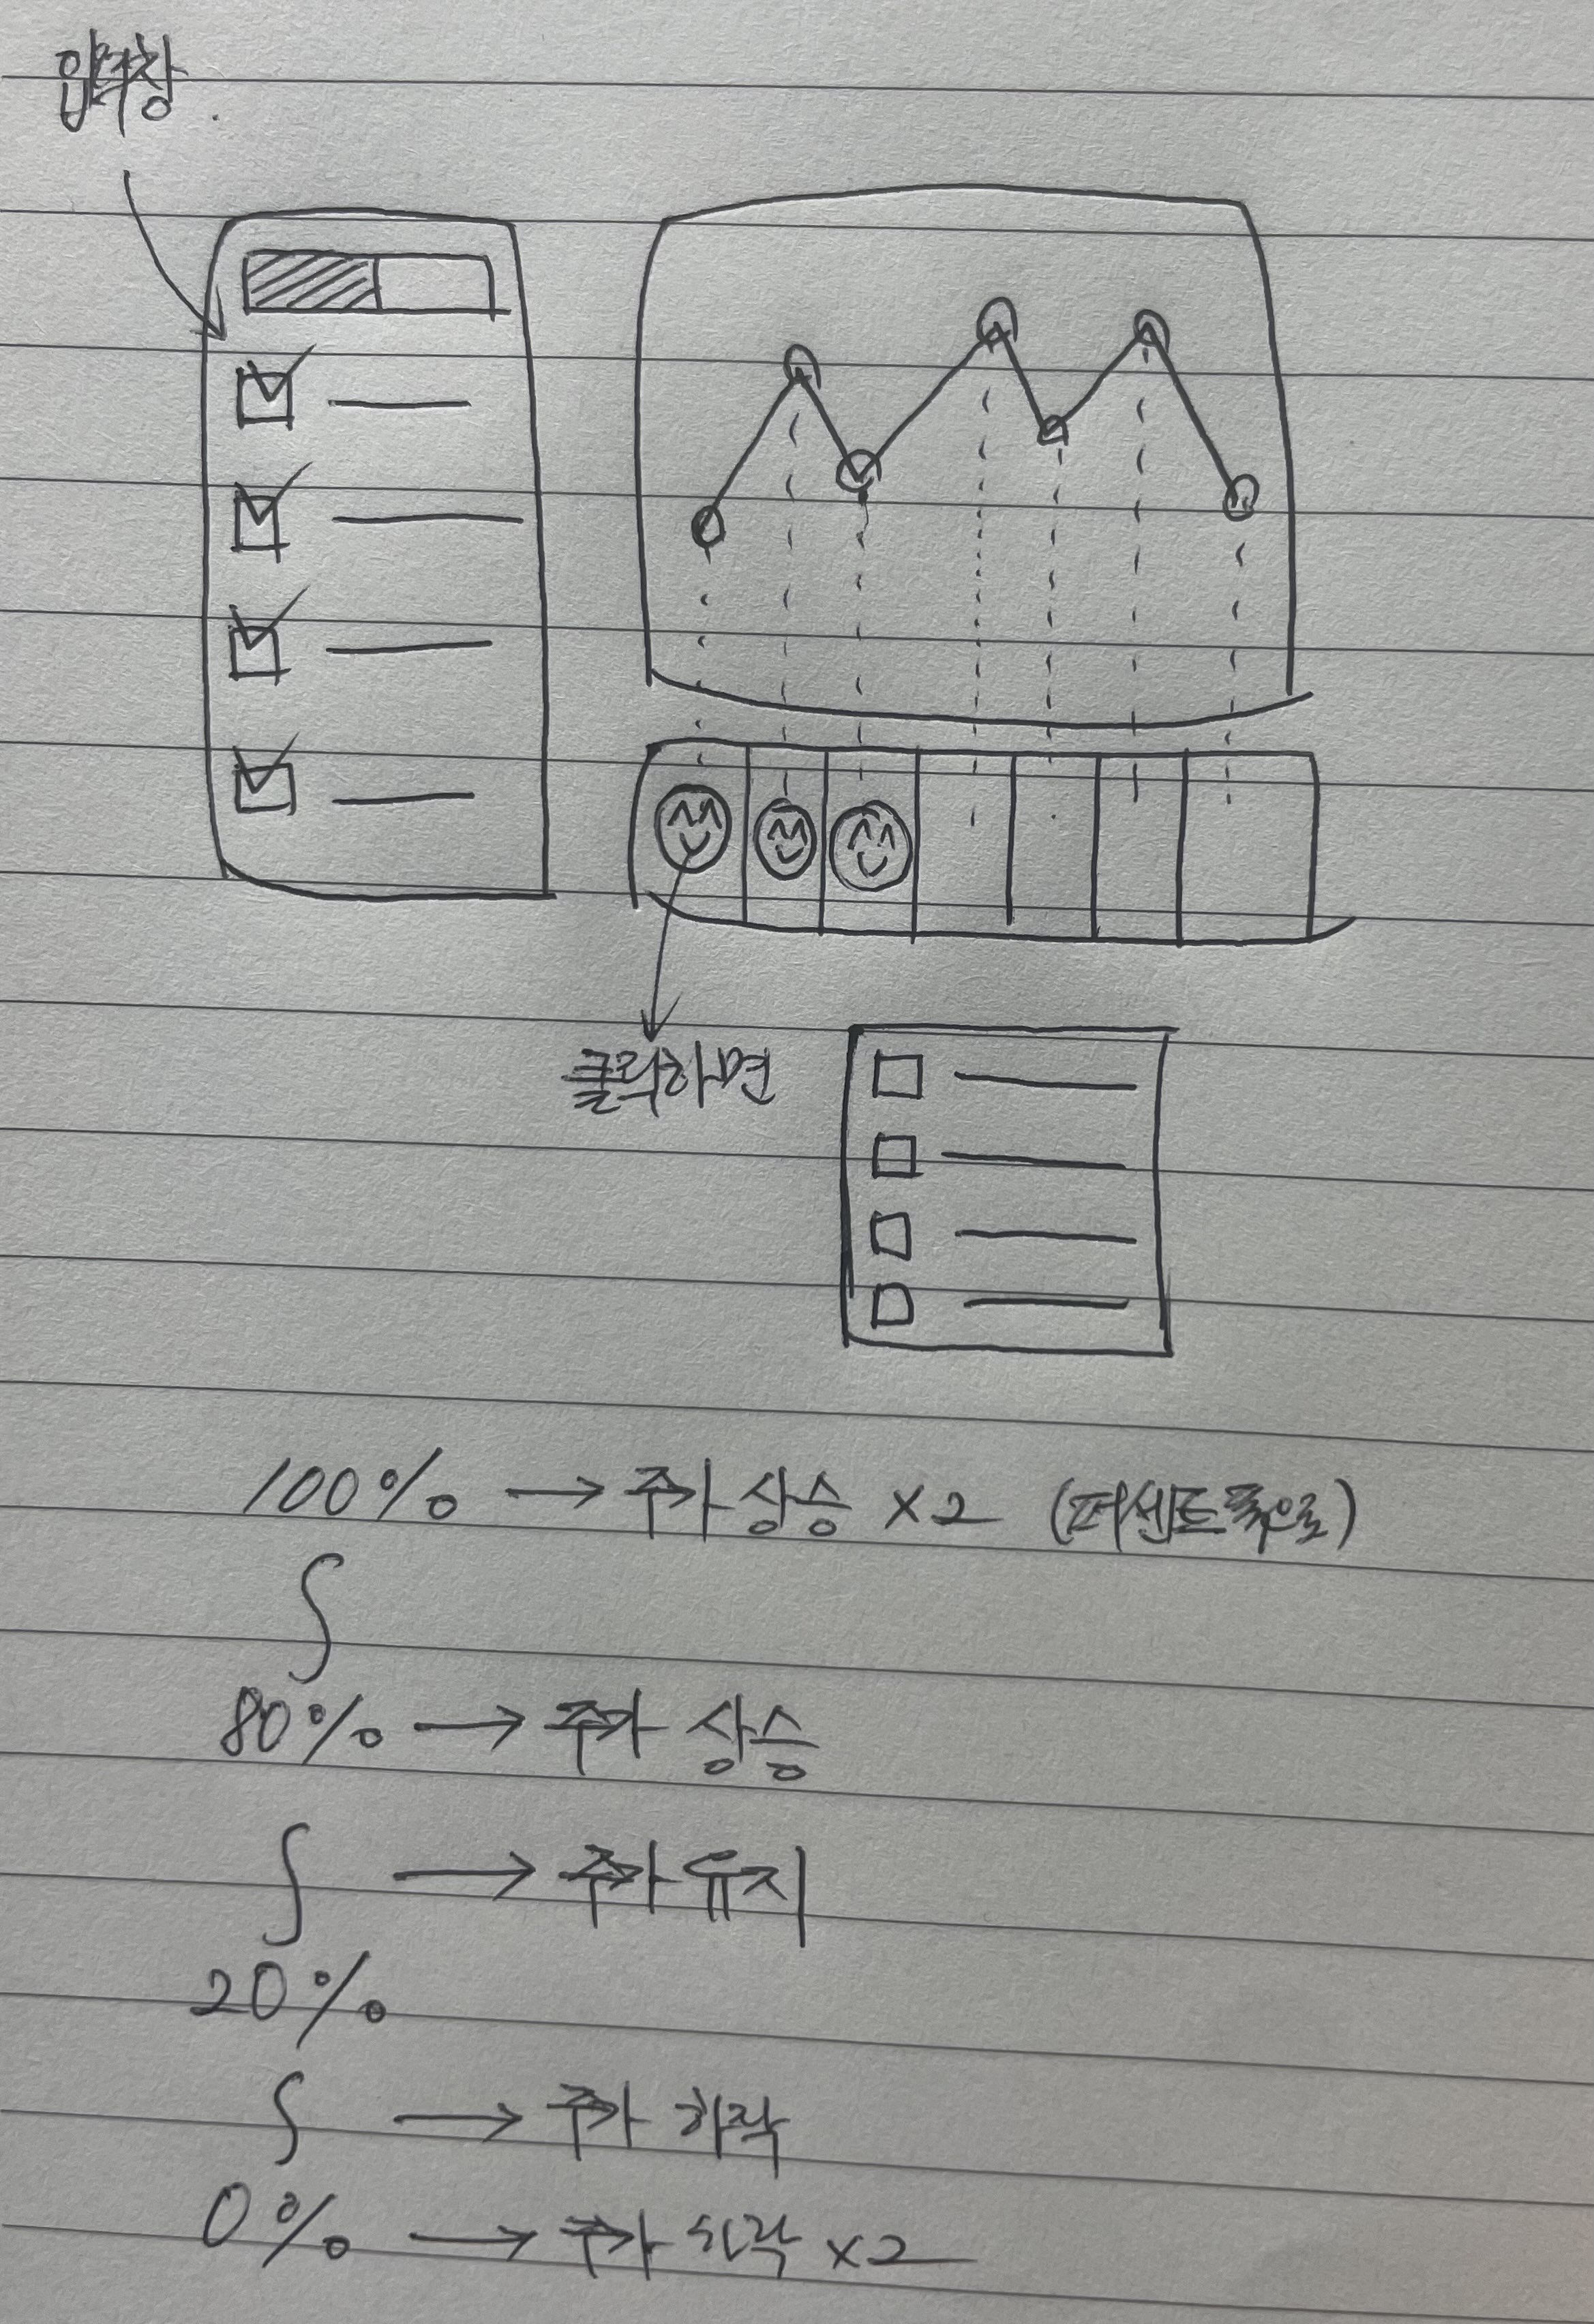 입력창
클릭하면
100% → 주가 상승 ×2 (퍼센트 폭으로)
80% → 주가 상승
→ 주가 유지
20%
→ 주가 하락
0% → 주가 하락 ×2